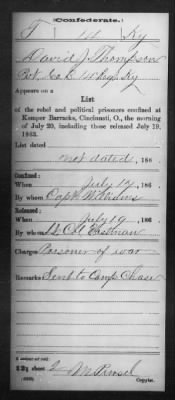 Confederate.
T 14 Ky
David J. Thompson
Pvt. Co. B 14 Reg. Ky
Appears on a
List
of the rebel and political prisoners confined at
Kemper Barracks, Cincinnati, O., the morning
of July 20, including those released July 19,
1863.
List dated
not dated, 186 .
Confined:
When July 17, 186 .
By whom Capt. Williams
Released:
When July 19, 186 .
By whom Lt. Col. Eastman
Charges Prisoner of war
Remarks Sent to Camp Chase
Copyist.